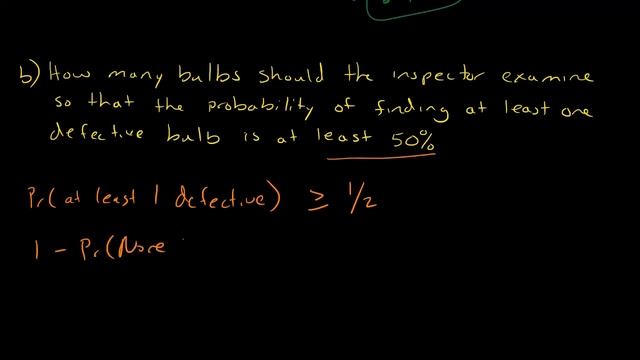 b) How many bulbs should the inspector examine
so that the probability of finding at least one
defective bulb is at least 50%
Pr(at least 1 defective) ≥ 1/2
1 - Pr(None